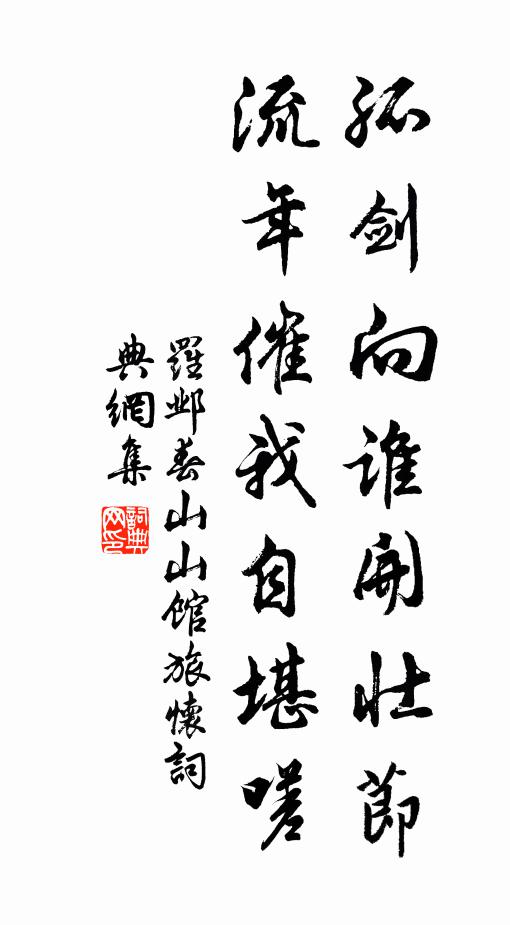 孤劍向誰開壯節
流年催我自堪嗟
羅鄴春山山館旅懷詞
典網集
詞典网印